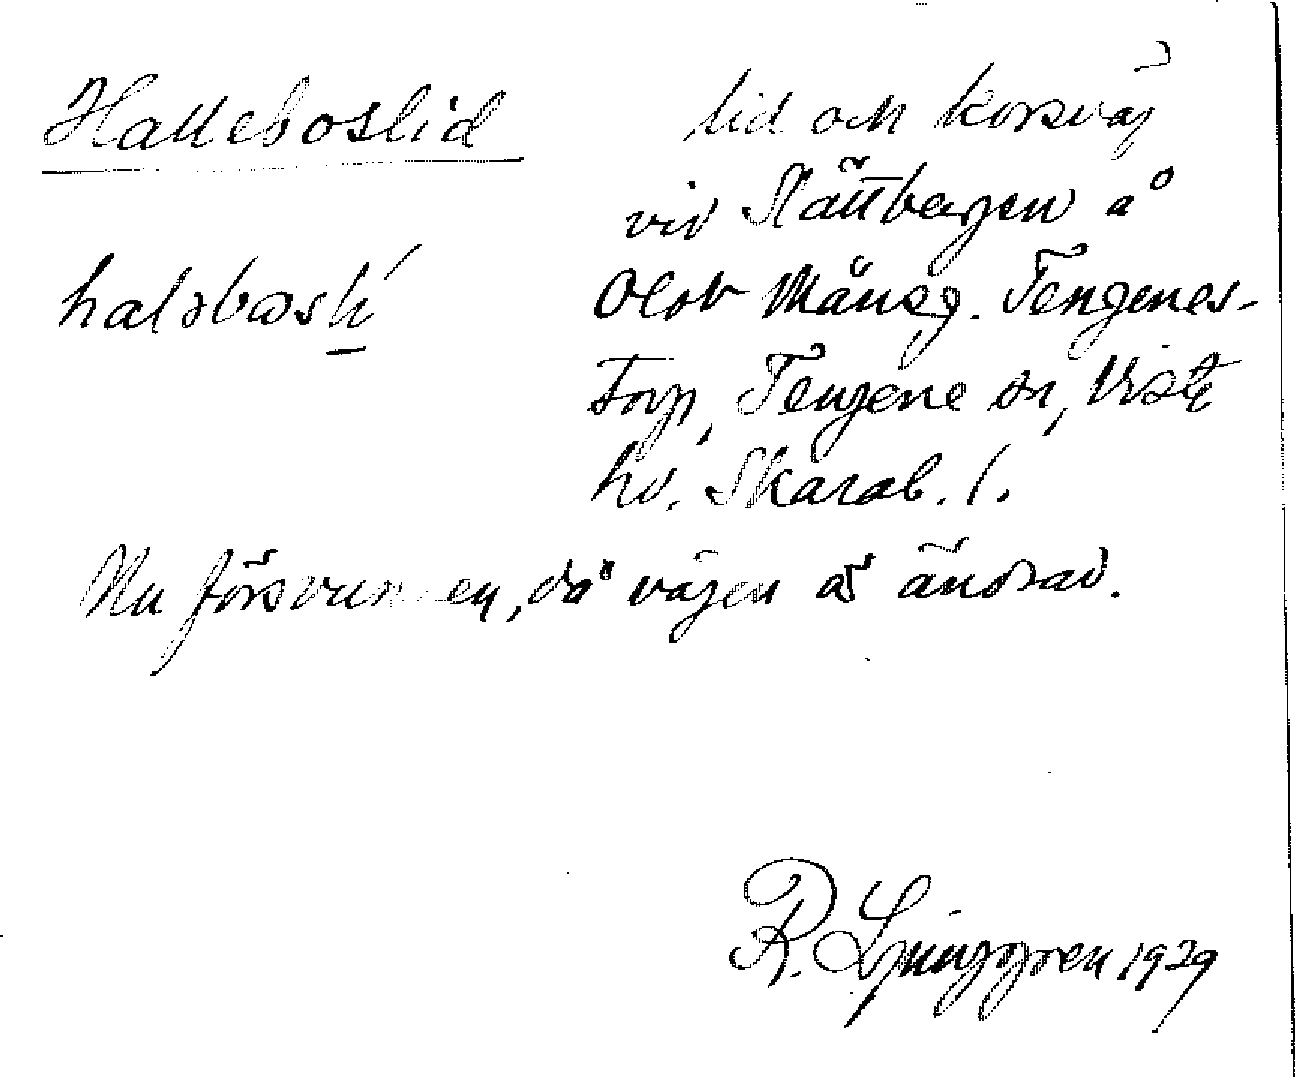 Halleboslid
lid och korsväg
vid Slättbergen å
halɘbωslí
Olov Månsg. Tengenes-
torp, Tengene sn, Viste
hd. Skarab. l.
Nu försvunnen, då vägen är ändrad.
R. Ljunggren 1929